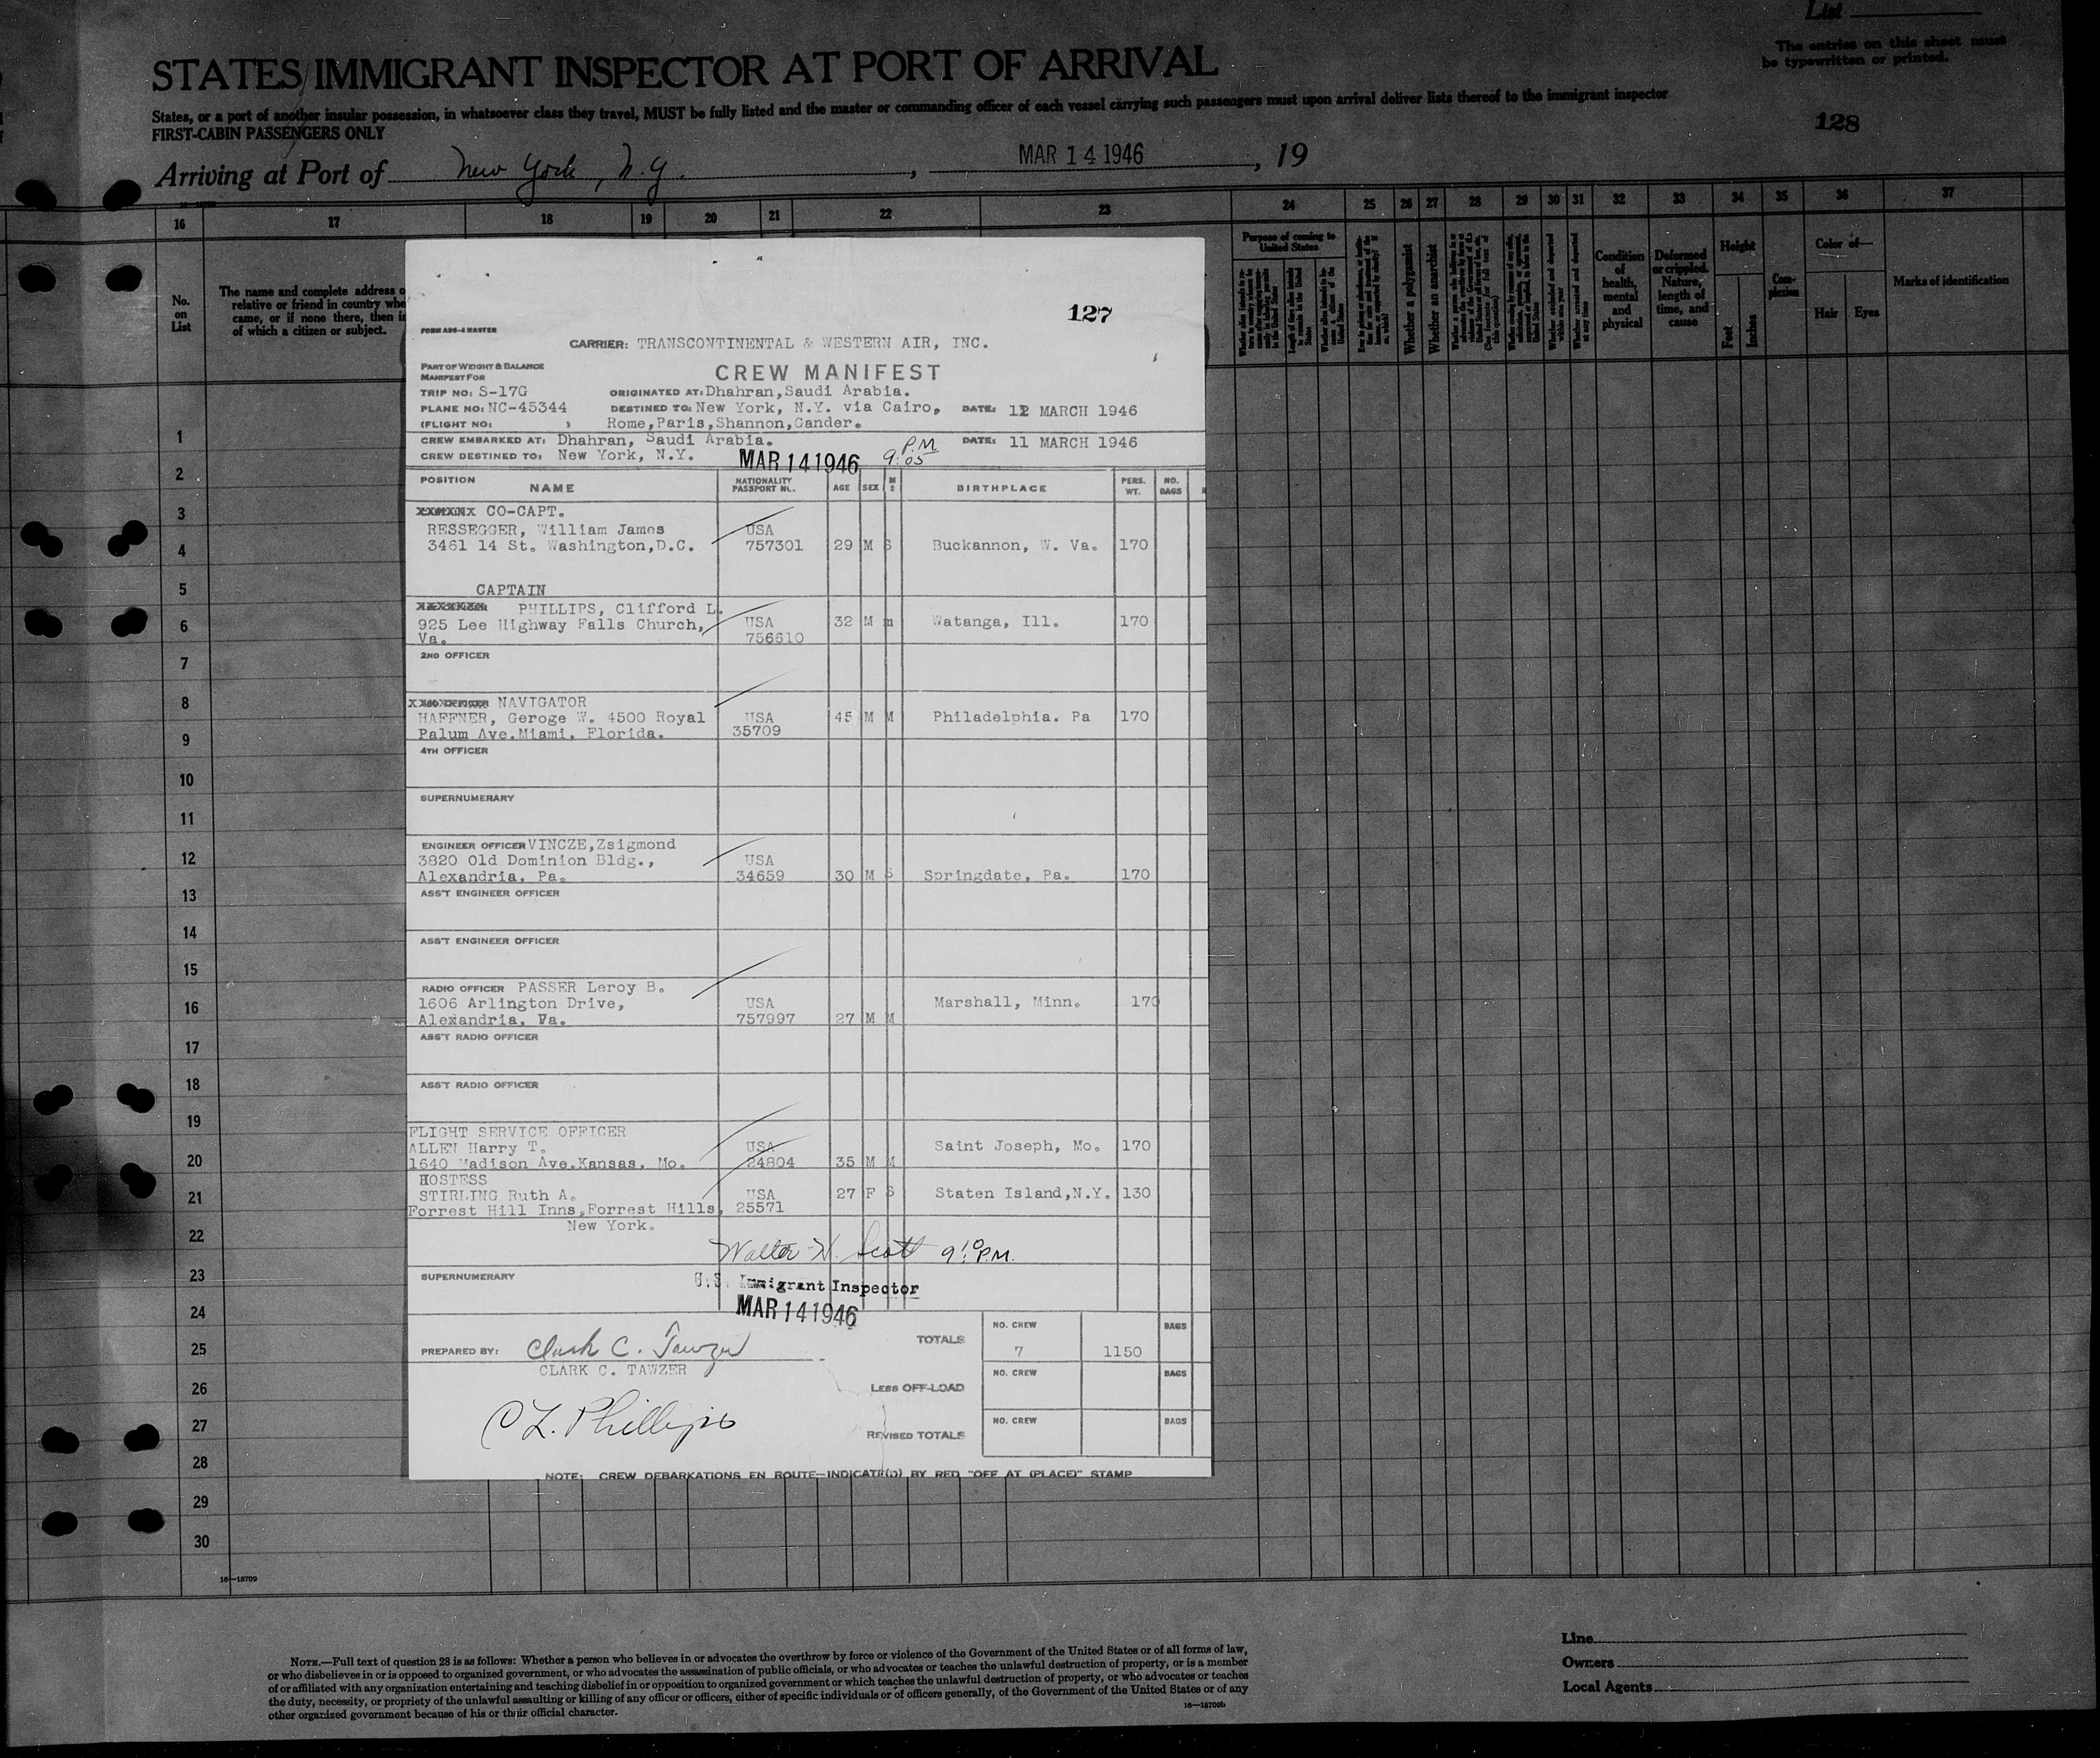 List
The entries on this sheet must
be typewritten or printed.
STATES IMMIGRANT INSPECTOR AT PORT OF ARRIVAL
States, or a port of another insular possession, in whatsoever class they travel, MUST be fully listed and the master or commanding officer of each vessel carrying such passengers must upon arrival deliver lists thereof to the immigrant inspector
FIRST-CABIN PASSENGERS ONLY
128
Arriving at Port of New York, N.Y. , MAR 14 1946 , 19
16 17 18 19 20 21 22 23 24 25 26 27 28 29 30 31 32 33 34 35 36 37
No.
on
List
The name and complete address o
relative or friend in country whe
came, or if none there, then i
of which a citizen or subject.
Purpose of coming to
United States
Whether a polygamist
Whether an anarchist
Condition
of
health,
mental
and
physical
Deformed
or crippled.
Nature,
length of
time, and
cause
Height
Feet
Inches
Com-
plexion
Color of—
Hair
Eyes
Marks of identification
127
FORM ADS-4 MASTER
CARRIER: TRANSCONTINENTAL & WESTERN AIR, INC.
PART OF WEIGHT & BALANCE
MANIFEST FOR
CREW MANIFEST
TRIP NO: S-17G ORIGINATED AT: Dhahran,Saudi Arabia.
PLANE NO: NC-45344 DESTINED TO: New York, N.Y. via Cairo, DATE: 12 MARCH 1946
(FLIGHT NO: ) Rome,Paris,Shannon,Gander.
CREW EMBARKED AT: Dhahran, Saudi Arabia. DATE: 11 MARCH 1946
CREW DESTINED TO: New York, N.Y. MAR 14 1946 9:05 P.M
POSITION NAME NATIONALITY PASSPORT NO. AGE SEX M S BIRTHPLACE PERS. WT. NO. BAGS
CO-CAPT.
RESSEGGER, William James USA
3461 14 St. Washington,D.C. 757301 29 M S Buckannon, W. Va. 170
CAPTAIN
PHILLIPS, Clifford L.
925 Lee Highway Falls Church, USA 32 M m Watanga, Ill. 170
Va. 756610
2ND OFFICER
NAVIGATOR
HAFFNER, Geroge W. 4500 Royal USA 45 M M Philadelphia. Pa 170
Palum Ave.Miami, Florida. 35709
4TH OFFICER
SUPERNUMERARY
ENGINEER OFFICER VINCZE,Zsigmond
3820 Old Dominion Bldg., USA
Alexandria, Pa. 34659 30 M S Springdate, Pa. 170
ASS'T ENGINEER OFFICER
ASS'T ENGINEER OFFICER
RADIO OFFICER PASSER Leroy B.
1606 Arlington Drive, USA Marshall, Minn. 170
Alexandria, Va. 757997 27 M M
ASS'T RADIO OFFICER
ASS'T RADIO OFFICER
FLIGHT SERVICE OFFICER
ALLEN Harry T. USA Saint Joseph, Mo. 170
1640 Madison Ave.Kansas, Mo. 24804 35 M M
HOSTESS
STIRLING Ruth A. USA 27 F S Staten Island,N.Y. 130
Forrest Hill Inns,Forrest Hills, 25571
New York.
Walter H. Scott 9:10 P.M.
SUPERNUMERARY
U.S. Immigrant Inspector
MAR 14 1946
PREPARED BY: Clark C. Tawzer
CLARK C. TAWZER
TOTALS NO. CREW 7 1150 BAGS
LESS OFF-LOAD NO. CREW BAGS
C L. Phillips
REVISED TOTALS NO. CREW BAGS
NOTE: CREW DEBARKATIONS EN ROUTE—INDICATE(D) BY RED "OFF AT (PLACE)" STAMP
1
2
3
4
5
6
7
8
9
10
11
12
13
14
15
16
17
18
19
20
21
22
23
24
25
26
27
28
29
30
16—18709
NOTE.—Full text of question 28 is as follows: Whether a person who believes in or advocates the overthrow by force or violence of the Government of the United States or of all forms of law,
or who disbelieves in or is opposed to organized government, or who advocates the assassination of public officials, or who advocates or teaches the unlawful destruction of property, or is a member
of or affiliated with any organization entertaining and teaching disbelief in or opposition to organized government or which teaches the unlawful destruction of property, or who advocates or teaches
the duty, necessity, or propriety of the unlawful assaulting or killing of any officer or officers, either of specific individuals or of officers generally, of the Government of the United States or of any
other organized government because of his or their official character.
16—18709b
Line
Owners
Local Agents